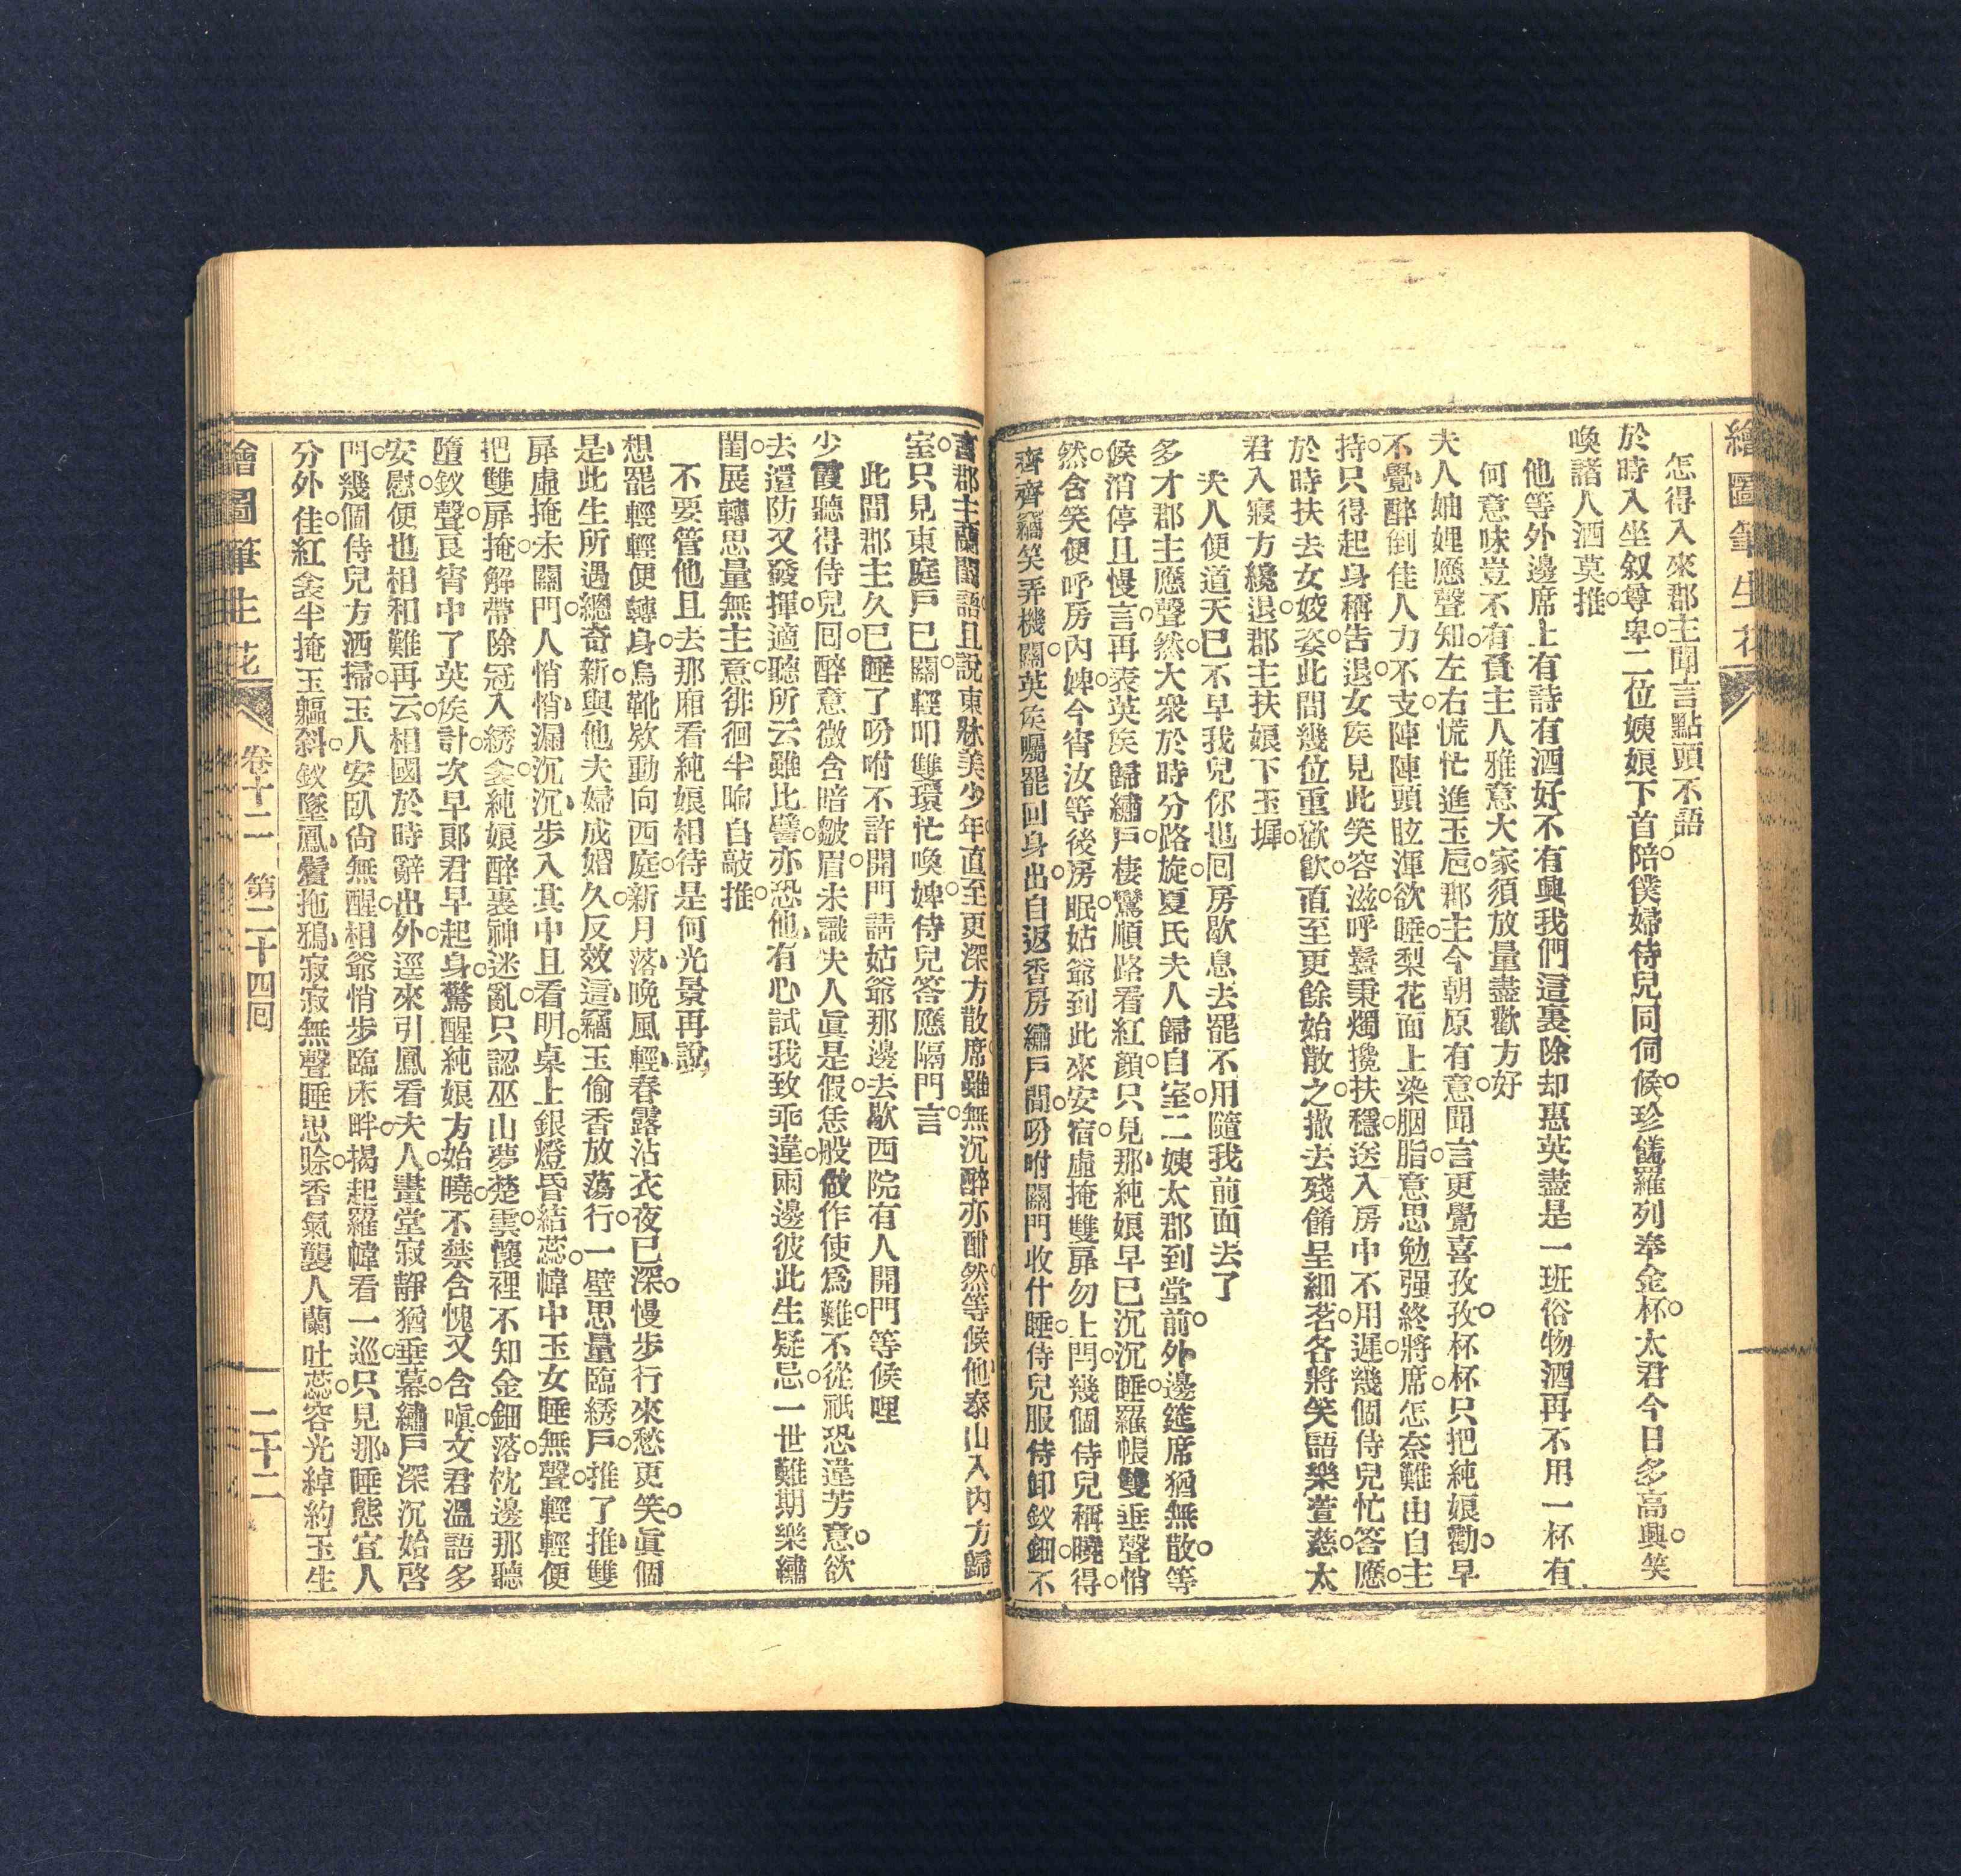 繪圖筆生花
怎得入來郡主聞言點頭不語
於時入坐叙尊卑○二位姨娘下首陪○僕婦侍兒同伺候○珍儀羅列奉金杯○太君今日多高興○笑
喚諸人酒莫推○
他等外邊席上有詩有酒好不有興我們這裏除却惠英盡是一班俗物酒再不用一杯有
何意味豈不有負主人雅意大家須放量盡歡方好
夫人妯娌應聲知○左右慌忙進玉巵○郡主今朝原有意○聞言更覺喜孜孜○杯杯只把純娘勸○早
不覺醉倒佳人力不支○陣陣頭眩渾欲睡○梨花面上染胭脂○意思勉强終將席○怎奈難由自主
持○只得起身稱告退○女侯見此笑容滋○呼鬟秉燭攙扶穩○送入房中不用遲○幾個侍兒忙答應○
於時扶去女姣姿○此間幾位重歡飲○直至更餘始散之○撤去殘餚呈細茗○各將笑語樂萱慈○太
君入寢方纔退○郡主扶娘下玉墀○
夫人便道天已不早我兒你也回房歇息去罷不用隨我前面去了
多才郡主應聲然○大衆於時分路旋○夏氏夫人歸自室○二姨太郡到堂前○外邊筵席猶無散○等
候消停且慢言○再表英侯歸繡戶○棲鸞順路看紅顏○只見那純娘早已沉沉睡○羅帳雙垂聲悄
然○含笑便呼房內婢○今宵汝等後房眠○姑爺到此來安宿○虛掩雙扉勿上閂○幾個侍兒稱曉得○
齊齊竊笑弄機關○英侯囑罷回身出○自返香房繡戶間○吩咐關門收什睡○侍兒服侍卸釵鈿○不
言郡主蘭閨語○且說東牀美少年○直至更深方散席○雖無沉醉亦酣然○等候他泰山入內方歸
室○只見東庭戶已關○輕叩雙環忙喚婢○侍兒答應隔門言○
此間郡主久已睡了吩咐不許開門請姑爺那邊去歇西院有人開門等候哩
少霞聽得侍兒回○醉意微含暗皺眉○未識夫人眞是假○恁般做作使爲難○不從祇恐違芳意○欲
去還防又發揮○適聽所云雖比譬○亦恐他有心試我致乖違○兩邊彼此生疑忌○一世難期樂繡
閨○展轉思量無主意○徘徊半晌自敲推○
不要管他且去那廂看純娘相待是何光景再說
想罷輕輕便轉身○烏靴欵動向西庭○新月落晚風輕春露沾衣夜已深○慢步行來愁更笑○眞個
是此生所遇總奇新○與他夫婦成婚久○反效這竊玉偷香放蕩行○一壁思量臨綉戶○推了推雙
扉虛掩未關門○人悄悄漏沉沉步入其中且看明○桌上銀燈昏結蕊○幃中玉女睡無聲○輕輕便
把雙扉掩○解帶除冠入綉衾○純娘醉裏神迷亂○只認巫山夢楚雲○懷裡不知金鈿落○枕邊那聽
墮釵聲○良宵中了英侯計○次早郎君早起身○驚醒純娘方始曉○不禁含愧又含嗔○文君溫語多
安慰○便也相和難再云○相國於時辭出外○逕來引鳳看夫人○畫堂寂靜猶垂幕○繡戶深沉始啓
門○幾個侍兒方洒掃○玉人安臥尙無醒○相爺悄步臨床畔○揭起羅幃看一巡○只見那睡態宜人
分外佳○紅衾半掩玉軀斜○釵墜鳳鬢拖鴉寂寂無聲睡思賖○香氣襲人蘭吐蕊○容光綽約玉生
繪圖筆生花
卷十二
第二十四回
二十二